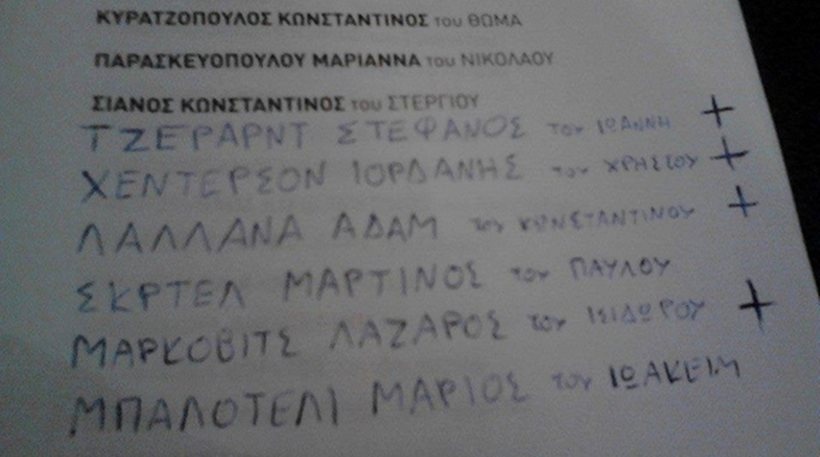 ΚΥΡΑΤΖΟΠΟΥΛΟΣ ΚΩΝΣΤΑΝΤΙΝΟΣ του ΘΩΜΑ
ΠΑΡΑΣΚΕΥΟΠΟΥΛΟΥ ΜΑΡΙΑΝΝΑ του ΝΙΚΟΛΑΟΥ
ΣΙΑΝΟΣ ΚΩΝΣΤΑΝΤΙΝΟΣ του ΣΤΕΡΓΙΟΥ
ΤΖΕΡΑΡΝΤ ΣΤΕΦΑΝΟΣ του ΙΩΑΝΝΗ +
ΧΕΝΤΕΡΣΟΝ ΙΟΡΔΑΝΗΣ του ΧΡΗΣΤΟΥ +
ΛΑΛΛΑΝΑ ΑΔΑΜ του ΚΩΝΣΤΑΝΤΙΝΟΥ +
ΣΚΡΤΕΛ ΜΑΡΤΙΝΟΣ του ΠΑΥΛΟΥ
ΜΑΡΚΟΒΙΤΣ ΛΑΖΑΡΟΣ του ΙΣΙΔΩΡΟΥ +
ΜΠΑΛΟΤΕΛΙ ΜΑΡΙΟΣ του ΙΩΑΚΕΙΜ